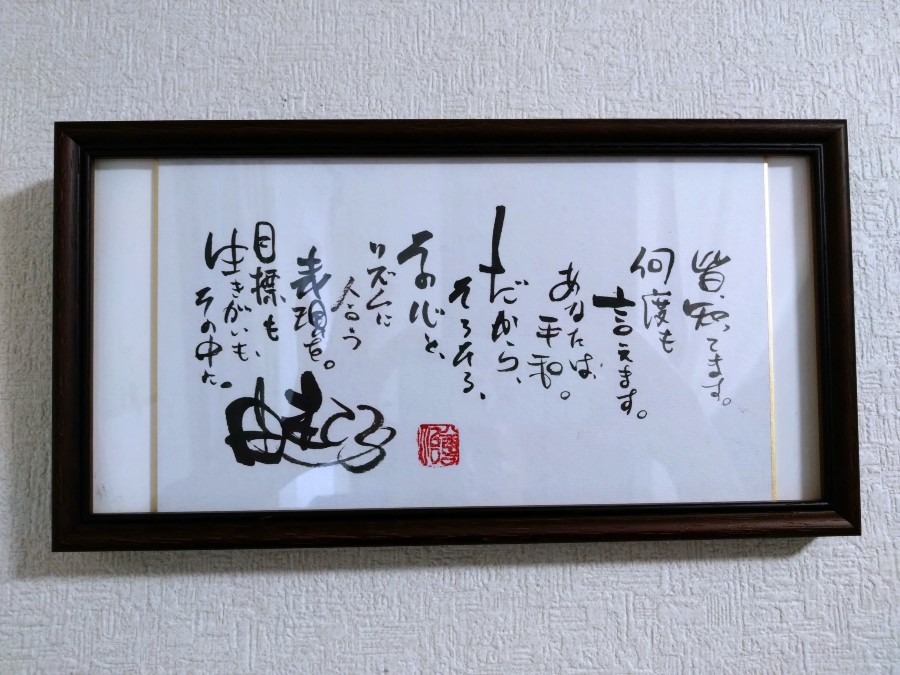 皆、知ってます。
何度も
言えます。
あなたは、
平和。
だから、
その心と、
リズムに
合う
表現を。
目標も、
生きがいも、
その中に。